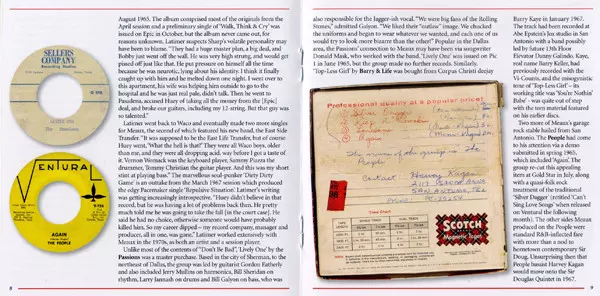 August 1965. The album comprised most of the originals from the
April session and a preliminary single of 'Walk, Think & Cry' was
issued on Epic in October, but the album never came out, for
reasons unknown. Latimer suspects Sharp's volatile personality may
have been to blame. "They had a huge master plan, a big deal, and
Bobby just went off the wall. He was very high strung, and would get
pissed off just like that. He put pressure on himself all the time
because he was neurotic, lying about his identity. I think it finally
caught up with him and he melted down one night. I went over to
his apartment, his wife was helping him outside to go to the
hospital and he was just real pale, didn't talk. Then he went to
Pasadena, accused Huey of taking all the money from the [Epic]
deal, and broke our guitars, including my 12-string. But that guy was
so talented."
Latimer went back to Waco and eventually made two more singles
for Meaux, the second of which featured his new band, the East Side
Transfer. "It was supposed to be the East Life Transfer, but of course
Huey went, 'What the hell is that?' They were all Waco boys, older
than me, and they were all dropping acid, way before I got a taste of
it. Vernon Womack was the keyboard player, Sammy Piazza the
drummer, Tommy Christian the guitar player. And this was my short
stint at playing bass." The marvellous soul-punker 'Dirty Dirty
Game' is an outtake from the March 1967 session which produced
the edgy Pacemaker single 'Repulsive Situation'. Latimer's writing
was getting increasingly introspective. "Huey didn't believe in that
record, but he was having a lot of problems back then. He pretty
much told me he was going to take the fall [in the court case]. He
said he had no choice, otherwise someone would have probably
killed him. So my career dipped – my record company, manager and
producer, all in one, was gone." Latimer worked extensively with
Meaux in the 1970s, as both an artist and a session player.
Unlike most of the contents of "Don't Be Bad", 'Lively One' by the
Passions was a master purchase. Based in the city of Sherman, to the
northeast of Dallas, the group was led by guitarist Gordon Fatherly
and also included Jerry Mullins on harmonica, Bill Sheridan on
rhythm, Larry Jannash on drums and Bill Galyon on bass, who was
SELLERS
COMPANY
Recording Studios
The Passions
VENTURAL
AGAIN
THE PEOPLE
8
also responsible for the Jagger-ish vocal. "We were big fans of the Rolling
Stones," admitted Galyon. "We liked their "outlaw" image. We chucked
the uniforms and began to wear whatever we wanted, and each one of us
would try to look more bizarre than the other!" Popular in the Dallas
area, the Passions' connection to Meaux may have been via songwriter
Donnie Carl, who worked with the band. 'Lively One' was issued on Pic
1 in late 1965, but the group made no further records. Similarly,
'Top-Less Girl' by Barry & Life was bought from Corpus Christi deejay
Professional quality at a popular price!
The name of the group is The
People
Contact Harvey Kagan
SAN ANTONIO, TEX
Time Chart
SCOTCH
BRAND
Magnetic Tape
Barry Kaye in January 1967.
The track had been recorded at
Abe Epstein's Jox studio in San
Antonio with a band possibly
led by future 13th Floor
Elevator Danny Galindo. Kaye,
real name Barry Keller, had
previously recorded with the
Vi-Counts, and the misogynistic
tone of 'Top-Less Girl' – its
working title was 'You're Nothin'
Babe' – was quite out of step
with the teen material featured
on his earlier discs.
Two more of Meaux's garage
rock stable hailed from San
Antonio. The People had come
to his attention via a demo
submitted in spring 1965,
which included 'Again'. The
group re-cut this appealing
item at Gold Star in July, along
with a quasi-folk rock
treatment of the traditional
'Silver Dagger' (retitled 'Can't
Sing Love Songs' when released
on Ventural the following
month). The other sides Meaux
produced on the People were
standard R&B-inflected fare
with more than a nod to
hometown contemporary Sir
Doug. Unsurprising then that
People bassist Harvey Kagan
would move onto the Sir
Douglas Quintet in 1967.
9